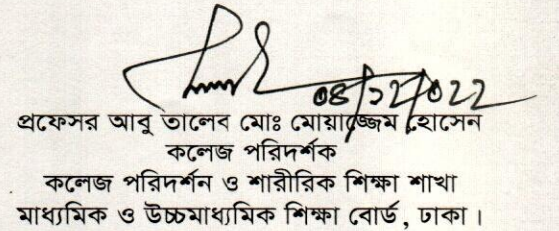 08/12/022
প্রফেসর আবু তালেব মোঃ মোয়াজ্জেম হোসেন
কলেজ পরিদর্শক
কলেজ পরিদর্শন ও শারীরিক শিক্ষা শাখা
মাধ্যমিক ও উচ্চমাধ্যমিক শিক্ষা বোর্ড, ঢাকা।